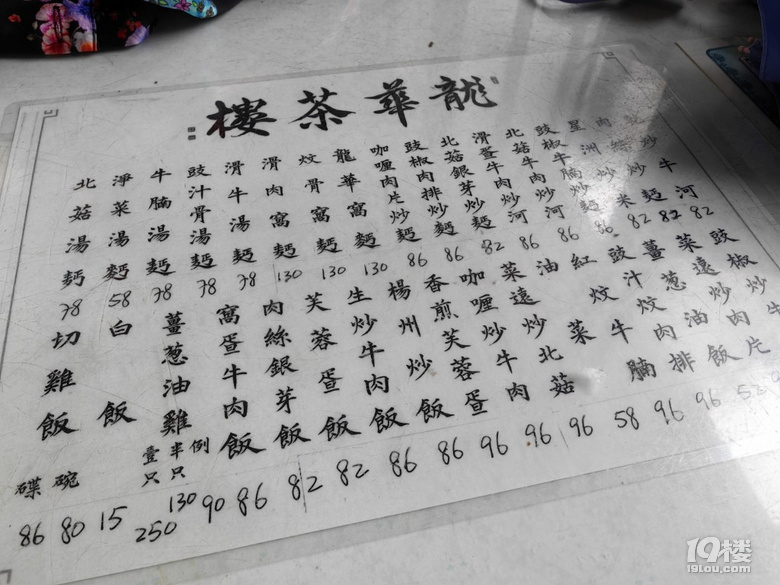 龍華茶樓
炒牛河 82
肉絲炒麵 82
星洲炒米 82
豉椒牛腩炒麵 86
北菇牛肉炒河 86
滑蛋牛肉炒河 86
北菇銀芽炒麵 82
豉椒肉排炒麵 86
咖喱肉片炒麵 86
龍華窩麵 130
炆骨窩麵 130
滑肉窩麵 130
滑牛湯麵 78
豉汁骨湯麵 78
牛腩湯麵 78
淨菜湯麵 58
北菇湯麵 78
豉椒炒牛
菜遠炒肉片
薑葱油飯 52
豉汁炆肉排 96
紅炆牛腩 96
油菜 58
菜遠炒北菇 96
咖喱炒牛肉 96
香煎芙蓉蛋 96
楊州炒飯 86
生炒牛肉飯 86
芙蓉蛋飯 82
肉絲銀芽飯 82
窩蛋牛肉飯 86
薑葱油雞 例 90 半只 130 壹只 250
白飯 15
切雞飯 碗 80 碟 86
19楼
19lou.com